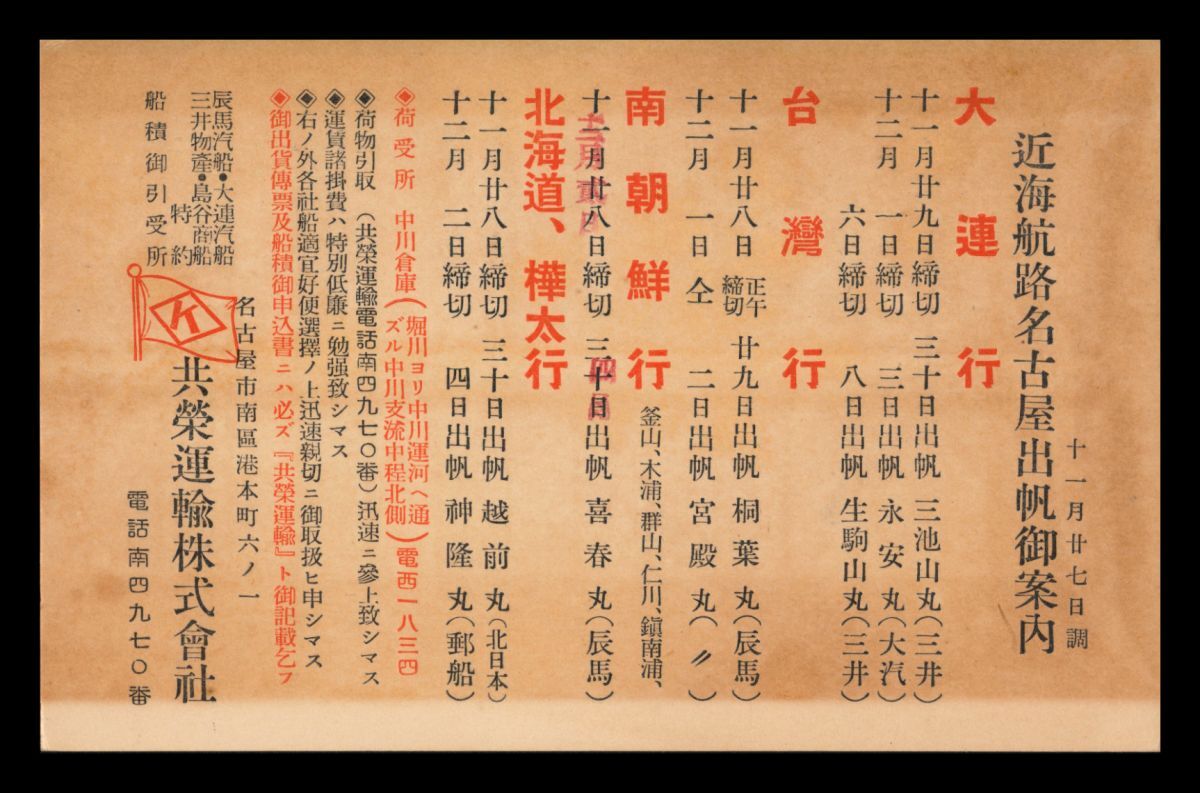 近海航路名古屋出帆御案內
十一月廿七日調
大連行
十一月廿九日締切 三十日出帆 三池山丸(三井)
十二月 一日締切 三日出帆 永安丸(大汽)
六日締切 八日出帆 生駒山丸(三井)
台灣行
十一月廿八日正午締切 廿九日出帆 桐葉丸(辰馬)
十二月 一日仝 二日出帆 宮殿丸(〃)
南朝鮮行 釜山、木浦、群山、仁川、鎭南浦、
十一月廿八日締切 三十日出帆 喜春丸(辰馬)
北海道、樺太行
十一月廿八日締切 三十日出帆 越前丸(北日本)
十二月 二日締切 四日出帆 神隆丸(郵船)
◈荷受所 中川倉庫(堀川ヨリ中川運河ヘ通ズル中川支流中程北側)電西一八三四
◈荷物引取 (共榮運輸電話南四九七〇番)迅速ニ參上致シマス
◈運賃諸掛費ハ特別低廉ニ勉强致シマス
◈右ノ外各社船適宜好便選擇ノ上迅速親切ニ御取扱ヒ申シマス
◈御出貨傳票及船積御申込書ニハ必ズ『共榮運輸』ト御記載乞フ
辰馬汽船・大連汽船
三井物產・島谷商船
特約
船積御引受所
名古屋市南區港本町六ノ一
K
共榮運輸株式會社
電話南四九七〇番